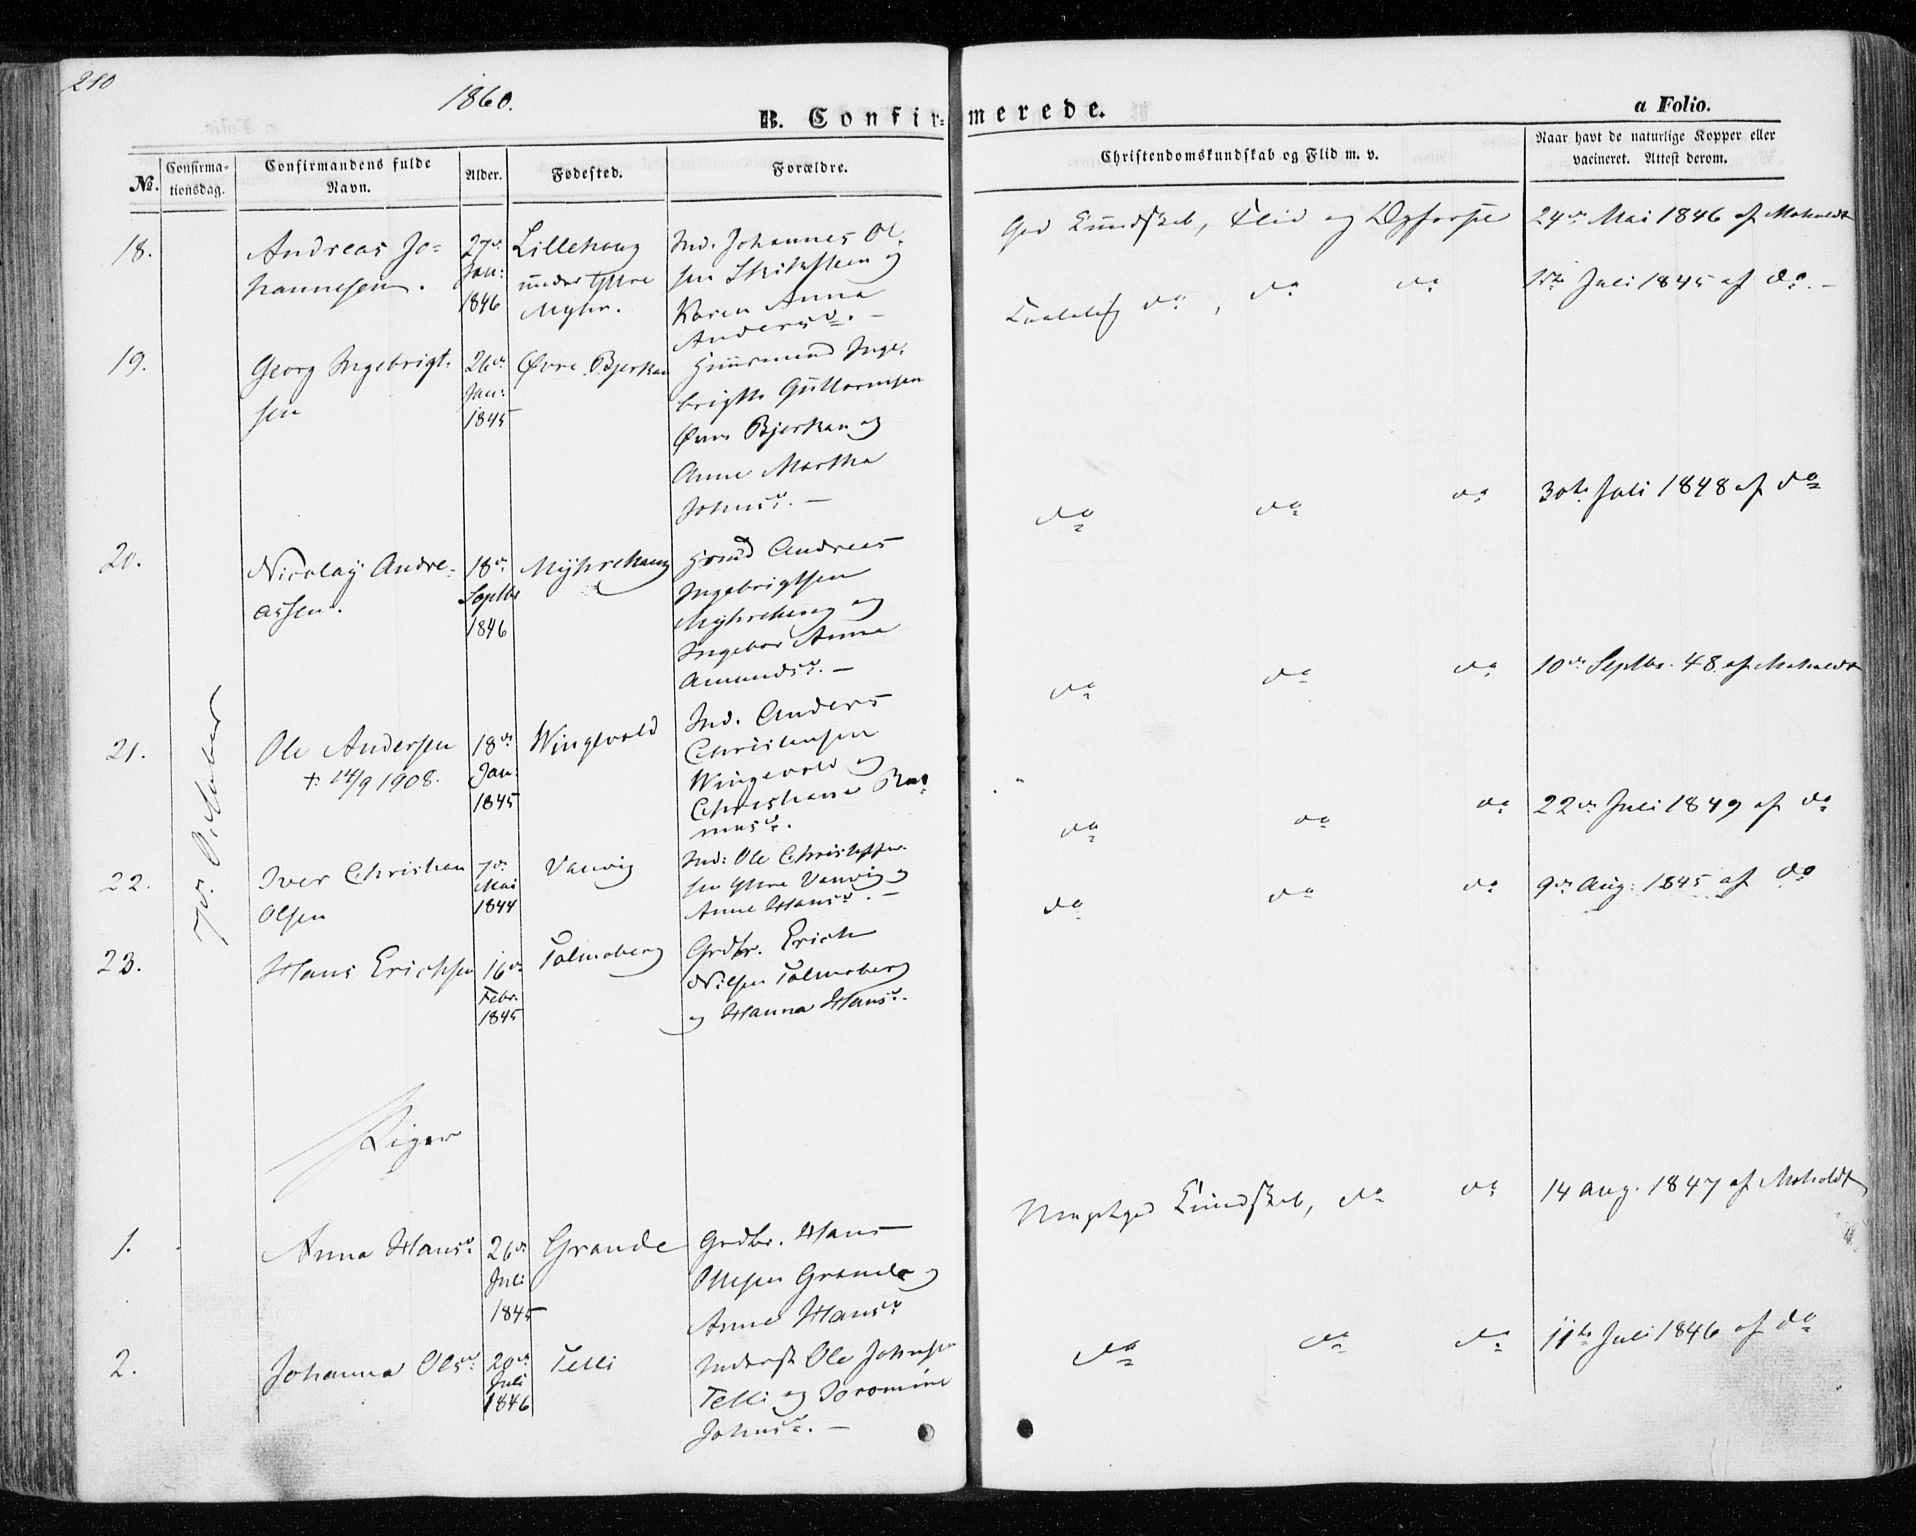 210
1860.
B. Confirmerede.
a Folio.
No.
Confirmationsdag.
Confirmandens fulde Navn.
Alder.
Fødested.
Forældre.
Christendomskundskab og Flid m. v.
Naar havt de naturlige Kopper eller vacineret. Attest derom.
7de October
18.
Andreas Jo-
hannesen.
27de
Jan:
1846
Lillehaug
under Ytre
Myhr.
Ind. Johannes Ol-
sen og
Karen Anna
Andersd. —
God Kundskab, Flid og Opførsel
24de Mai 1846 af Moholdt
19.
Georg Ingebrigt-
sen
26de
Jan:
1845
Øvre Bjerkan
Huusmand Inge-
brigt Guttormsen
Øvre Bjerkan og
Anne Martha
Johnsd. —
do, do do
Juli 1845 af do. —
20.
Nicolay Andre-
assen.
18de
Septbr
1846
Myhrehaug
Hsmd Andreas
Ingebrigtsen
Myhrehaug og
Ingebor Anna
Amundsd. —
do do do
30te Juli 1848 af do
21.
Ole Andersen
+ 14/9 1908.
18de
Jan:
1845
Wingevold
Ind. Anders
Christensen
Wingevold og
Christiana Ras-
musd.
do do do
10de Septbr. 48 af Moholdt
22.
Iver Christian
Olsen
7de
Mai
1844
Vanvig
Ind: Ole Christoffer-
sen Ytre Vanvig og
Anne Hansd. —
do do do
22de Juli 1849 af do
23.
Hans Erichsen
16de
Febr.
1845
Tølmeberg
Grdbr. Erich
Nilsen Tølmeberg
og Hanna Hansd.
do do do
9de Aug: 1845 af do
Piger
1.
Anna Hansd.
26de
Juli
1845
Grande
Grdbr. Hans
Olesen Grande og
Anne Hansd.
Meget god Kundskab, do do
14 Aug. 1847 af Moholdt
2.
Johanna Olsd.
20de
Juli
1846
Telli
Inderst Ole Johnsen
Telli og
Johnsd. —
do do do
11te Juli 1846 af do